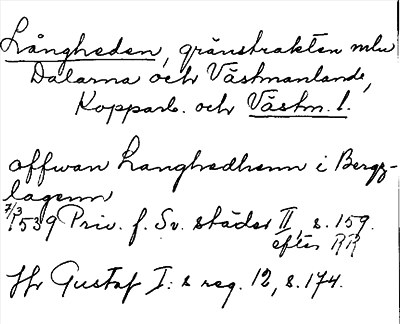 Långheden, gränstrakten mlu
Dalarna och Västmanland,
Kopparb. och Västm. l.
offwan Langhedhenn i Bergz-
lagenn
7/3 1539 Priv. f. Sv. städer II, s. 159.
efter RR
Jfr Gustaf I:s reg. 12, s. 174.